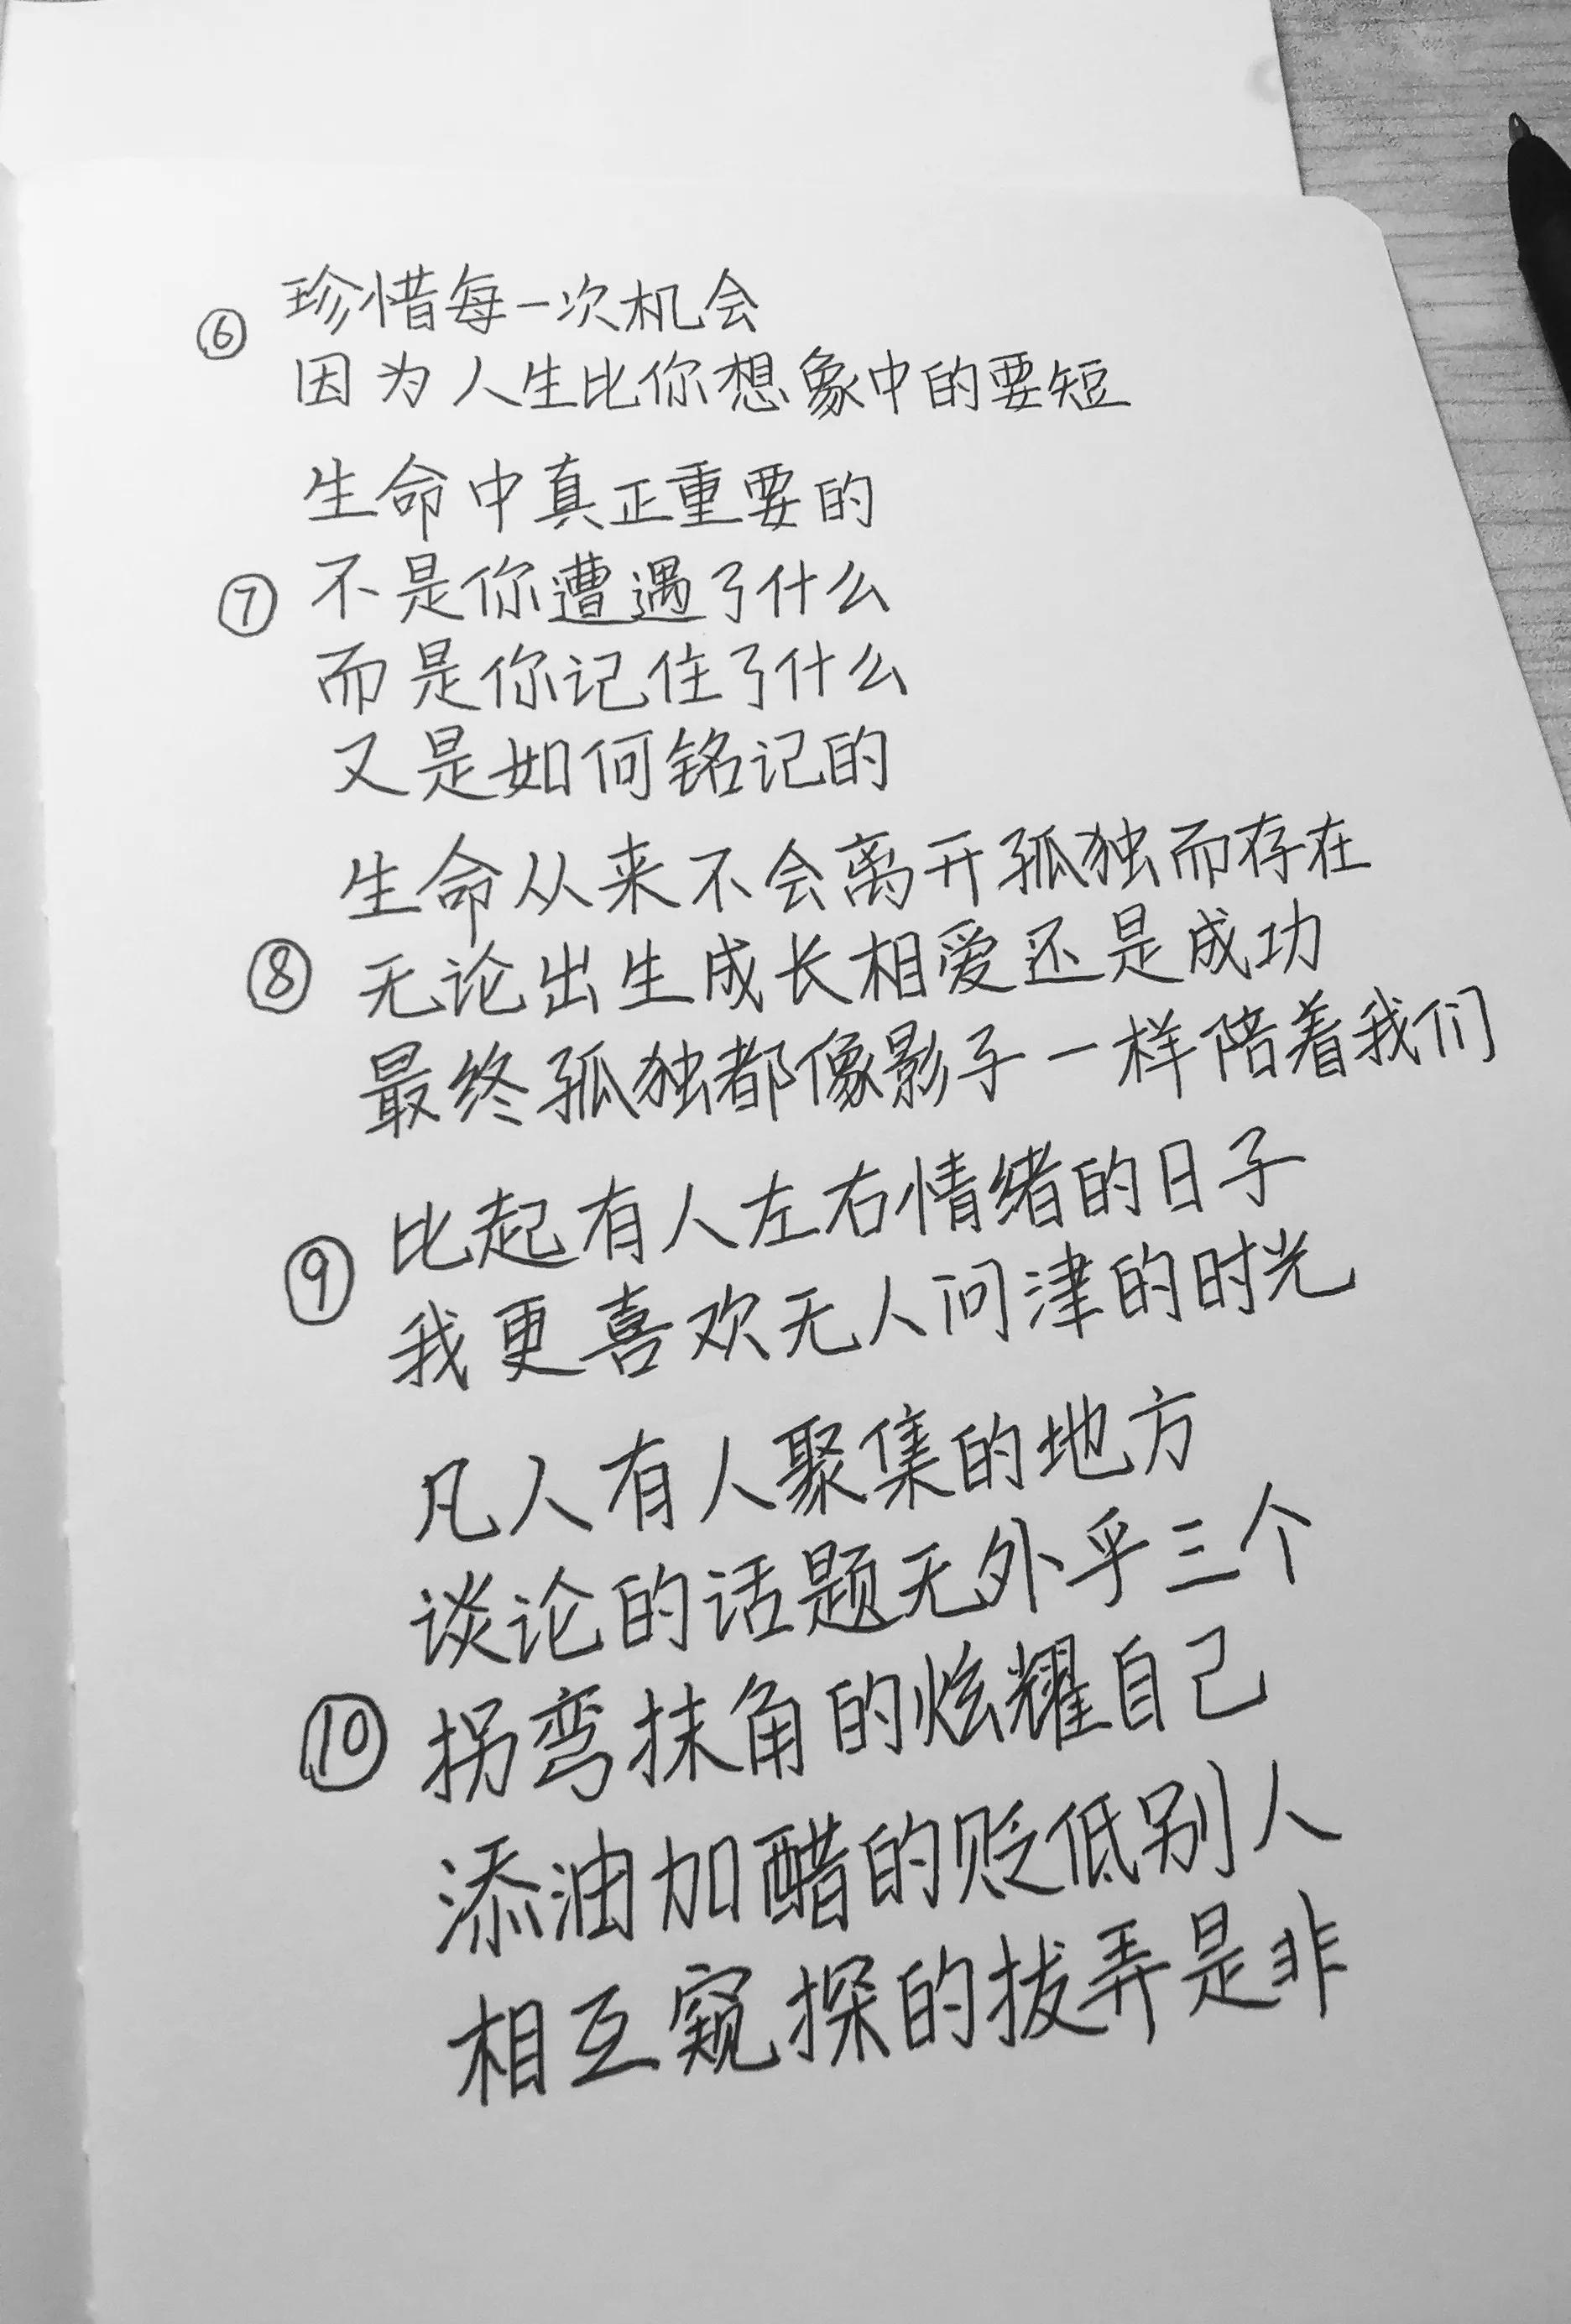 ⑥ 珍惜每一次机会
因为人生比你想象中的要短
生命中真正重要的
⑦ 不是你遭遇了什么
而是你记住了什么
又是如何铭记的
生命从来不会离开孤独而存在
⑧ 无论出生成长相爱还是成功
最终孤独都像影子一样陪着我们
⑨ 比起有人左右情绪的日子
我更喜欢无人问津的时光
凡人有人聚集的地方
谈论的话题无外乎三个
⑩ 拐弯抹角的炫耀自己
添油加醋的贬低别人
相互窥探的拔弄是非